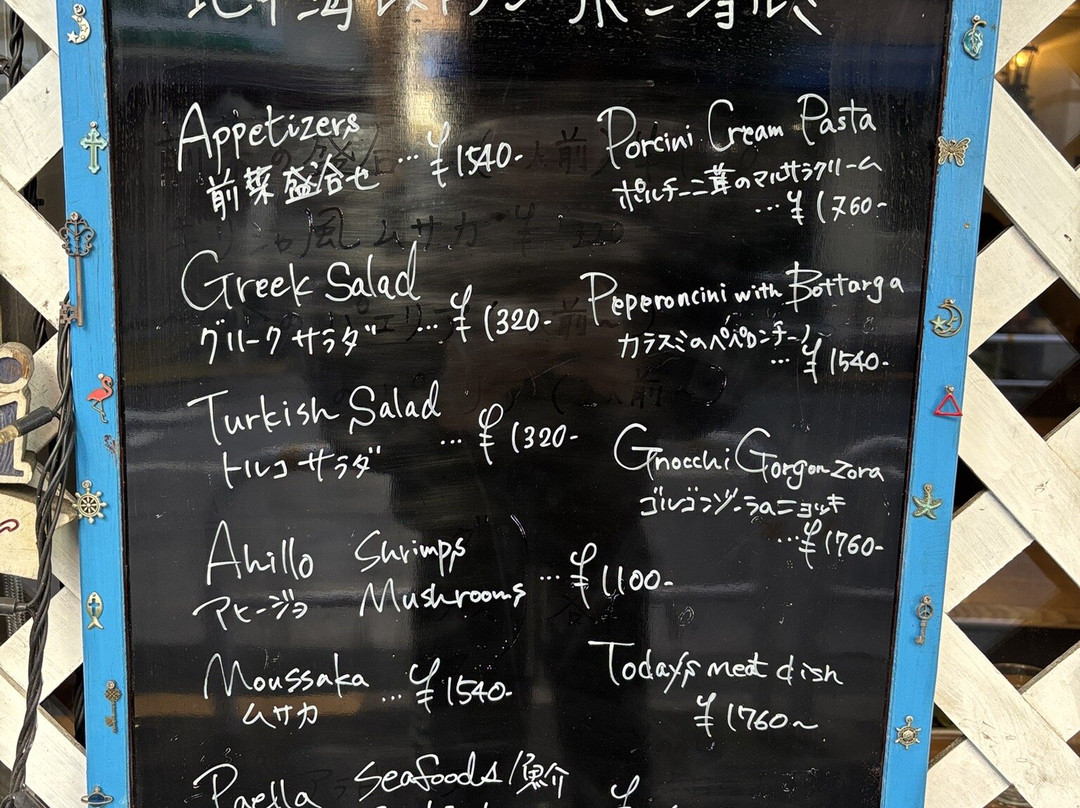 Appetizers
前菜盛合せ … ¥1540-
Greek Salad
グリークサラダ … ¥1320-
Turkish Salad
トルコサラダ … ¥1320-
Ahillo Shrimps
アヒージョ Mushrooms … ¥1100-
Moussaka
ムサカ … ¥1540-
Paella Seafoods/魚介
Porcini Cream Pasta
ポルチーニ茸のマルサラクリーム
… ¥1760-
Peperoncini with Bottarga
カラスミのペペロンチーノ
… ¥1540-
Gnocchi Gorgonzora
ゴルゴンゾーラのニョッキ
… ¥1760-
Today's meat dish
¥1760~